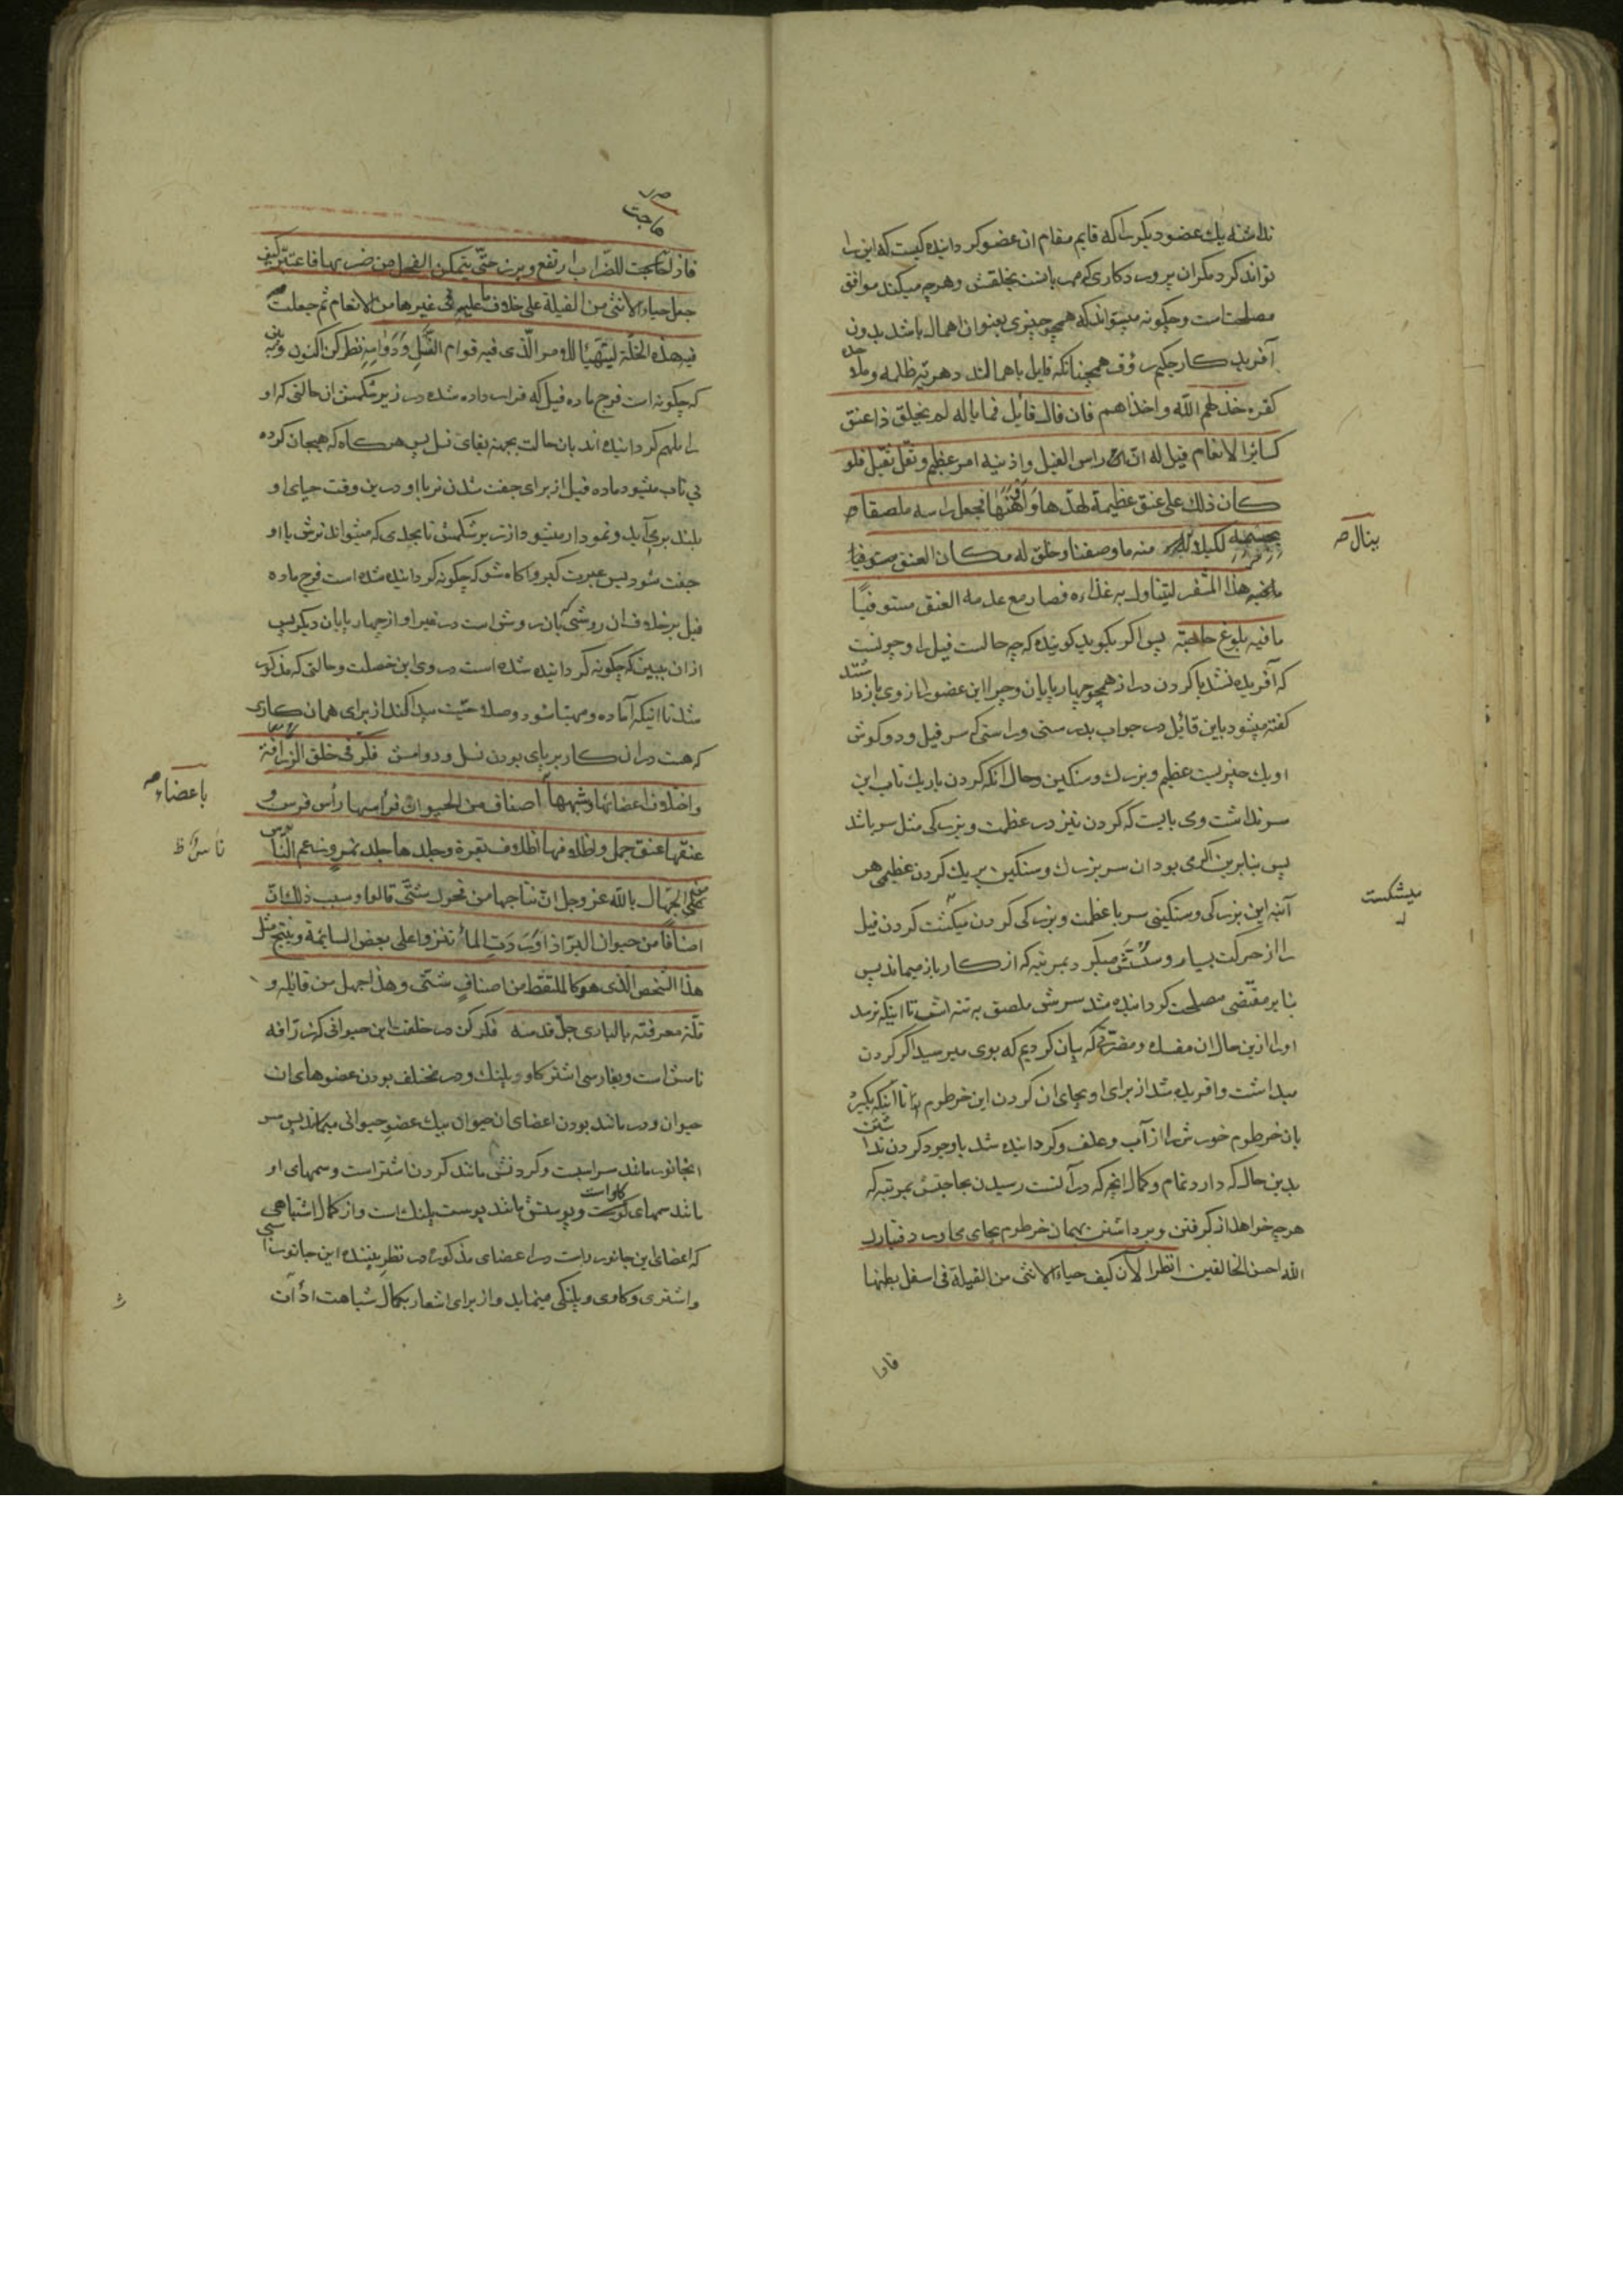 نداشته یك عضو دیگر را که قایم مقام ان عضو کر دانیده کیست که این را
تواند کرد مکران پرورد کاری که مهربانست بخلقش وهرچه میکند موافق
مصلحت است و چکونه میتواند که همچو چیزی بعنوان اهمال باشد بدون
آفرید کار حکیم رؤف همچنانکه قایل باهمالند دهریّه ظلمه و ملاحده
کفره خذلهم الله واخذاهم فان قال قائل فما باله لم یخلق ذا عنق
کسائر الانعام قیل له ان راس الفیل واذنیه امر عظیم وثقل ثقیل فلو
کان ذلك علی عنق عظیمة لهدّها وَاَوْهَنَهَا فجعل راسه ملصقا
بجسمه لکیلا ینال منه ما وصفنا وخلق له مکان العنق
هذا المشفر لیتناول به غذاءه فصار مع عدمه العنق مستوفیًا
مافیه بلوغ حاجته پس اکر بکوید کوینده که چه حالست فیل را وچونست
که آفریده نشد با کردن دراز همچو چهار پایان وچرا این عضو را از وی باز داشتند
کفته میشود باین قائل در جواب بدرستی وراستی که سر فیل و دو کوش
او یك چیزیست عظیم وبزرك وسنکین وحال انکه کردن باریك تاب این
سر نداشت و می بایست که کردن نیز در عظمت و بزرکی مثل سر باشد
پس بنابرین اکر می بود ان سر بزرك وسنکین بر یك کردن عظیمی هر
آینه این بزرکی وسنکینی سر با عظمت و بزرکی کردن میکشت کردن فیل
را از حرکت بسیار و سستش میکرد بمرتبه که از کار باز میماند پس
بنابر مقتضی مصلحت کردانیده شد سرش ملصق به تنه اش تا اینکه نرسد
اورا ازین حال ان مفسده ومضرّتی که بیان کردیم که بوی میرسید اکر کردن
میداشت وافریده شد از برای او بجای ان کردن این خرطوم را تا اینکه بکیرد
بان خرطوم خورش را از آب وعلف وکردانیده شد با وجود کردن نداشتن
بدین حال که دارد تمام وکمال انچه که در آنست رسیدن بحاجتش بمرتبه که
هرچه خواهد از کرفتن وبرداشتن بهمان خرطوم بجای می اورد فتبارك
الله احسن الخالقین انظر الآن کیف حیاء الانثی من الفیلة فی اسفل بطنها
فاذا
ینال صح
میشکست
هاجت
فاذا هاجت للضّراب ارتفع وبرز حتّی یتمکن الفحل من ضربها فاعتبر کیف
جعل حیاء الانثی من الفیلة علی خلاف ما علیه فی غیرها من الانعام ثم جعلت
فیه هذه الخلّة لیتهیّأ للامر الّذی فیه قوام النَّسْلِ وَدَوَامِهِ نظر کن اکنون
که چکونه است فرج ماده فیل که قرار داده شده در زیر شکمش ان حالتی که او
را ملهم کر دانیده اند بان حالت بجهة بقای نسل پس هر کاه که هیجان کرده
بی تاب میشود ماده فیل از برای جفت شدن نر با او درین وقت حیای او
بلند بر می آید و نمودار میشود از زیر شکمش تا بحدی که میتواند نرش با او
جفت شود پس عبرت کیر واکاه شو که چکونه کردانیده شده است فرج ماده
فیل بر خلاف ان روشی که بان روش است در غیر او از چهار پایان دیکر پس
از ان ببین که چکونه کردانیده شده است در وی این خصلت و حالتی که مذکور
شد تا اینکه آماده ومهیّا شود وصلاحیّت پیدا کند از برای همان کاری
که هست در ان کار برپای بودن نسل ودوامش فکّر فی خلق الزرافة
واختلاف اعضائها وشبهها اصناف من الحیوان فرأسها رأس فرس و
عنقها عنق جمل واظلافها اظلاف بقرة وجلدها جلد نمر وزعم الناس
من الجهّال بالله عز وجل انّ نتاجها من فحول شتّی قالوا وسبب ذلك انّ
اصنافًا من حیوان البرّ اذا وَرَدَتِ الماءَ تنزوا علی بعض السائمة وینتج مثل
هذا الشخص الّذی هو کالملتقط من اصنافٍ شتّی وهذا جهل من قائله و
قلّة معرفته بالباری جلّ قدسه فکر کن در خلقت این حیوانی که زرّافه
نامش است وبفارسی اشتر کاو پلنك ودر مختلف بودن عضوهای ان
حیوان ودر مانند بودن اعضای ان حیوان بیك عضو حیوانی میماند پس سر
انجانور مانند سر اسبست وکردنش مانند کردن اشتر است وسمهای او
مانند سمهای کاو است وپوستش مانند پوست پلنك است واز کمال اشتباهی
که اعضای این جانور راست در اعضای مذکوره در نظر بیننده این جانور اسبی
واشتری وکاوی وپلنکی مینماید واز برای اشعار بکمال شباهت ادات
باعضاء صح
نامش ظ